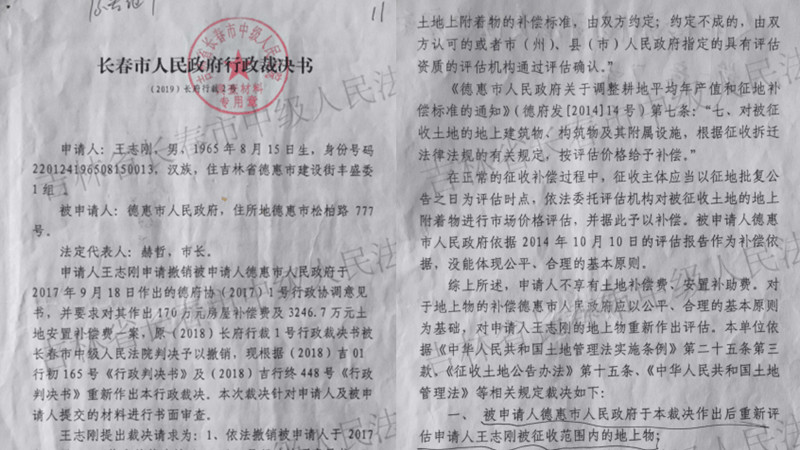 11
长春市人民政府行政裁决书
（2019）长府行裁2号
申请人：王志刚，男，1965年8月15日生，身份号码
220124196508150013，汉族，住吉林省德惠市建设街丰盛委
1组。
被申请人：德惠市人民政府，住所地德惠市松柏路777
号。
法定代表人：赫哲，市长。
申请人王志刚申请撤销被申请人德惠市人民政府于
2017年9月18日作出的德府协（2017）1号行政协调意见
书，并要求对其作出170万元房屋补偿费及3246.7万元土
地安置补偿费一案，原（2018）长府行裁1号行政裁决书被
长春市中级人民法院判决予以撤销，现根据（2018）吉01
行初165号《行政判决书》及（2018）吉行终448号《行政
判决书》重新作出本行政裁决。本次裁决针对申请人及被申
请人提交的材料进行书面审查。
王志刚提出裁决请求为：1、依法撤销被申请人于2017
土地上附着物的补偿标准，由双方约定；约定不成的，由双
方认可的或者市（州）、县（市）人民政府指定的具有评估
资质的评估机构通过评估确认。”
《德惠市人民政府关于调整耕地平均年产值和征地补
偿标准的通知》（德府发[2014]14号）第七条：“七、对被征
收土地的地上建筑物、构筑物及其附属设施，根据征收拆迁
法律法规的有关规定，按评估价格给予补偿。”
在正常的征收补偿过程中，征收主体应当以征地批复公
告之日为评估时点，依法委托评估机构对被征收土地的地上
附着物进行市场价格评估，并据此予以补偿。被申请人德惠
市人民政府依据2014年10月10日的评估报告作为补偿依
据，没能体现公平、合理的基本原则。
综上所述，申请人不享有土地补偿费、安置补助费。对
于地上物的补偿德惠市人民政府应以公平、合理的基本原则
为基础，对申请人王志刚的地上物重新作出评估。本单位依
据《中华人民共和国土地管理法实施条例》第二十五条第三
款、《征收土地公告办法》第十五条、《中华人民共和国土地
管理法》等相关规定裁决如下：
一、被申请人德惠市人民政府于本裁决作出后重新评
估申请人王志刚被征收范围内的地上物；